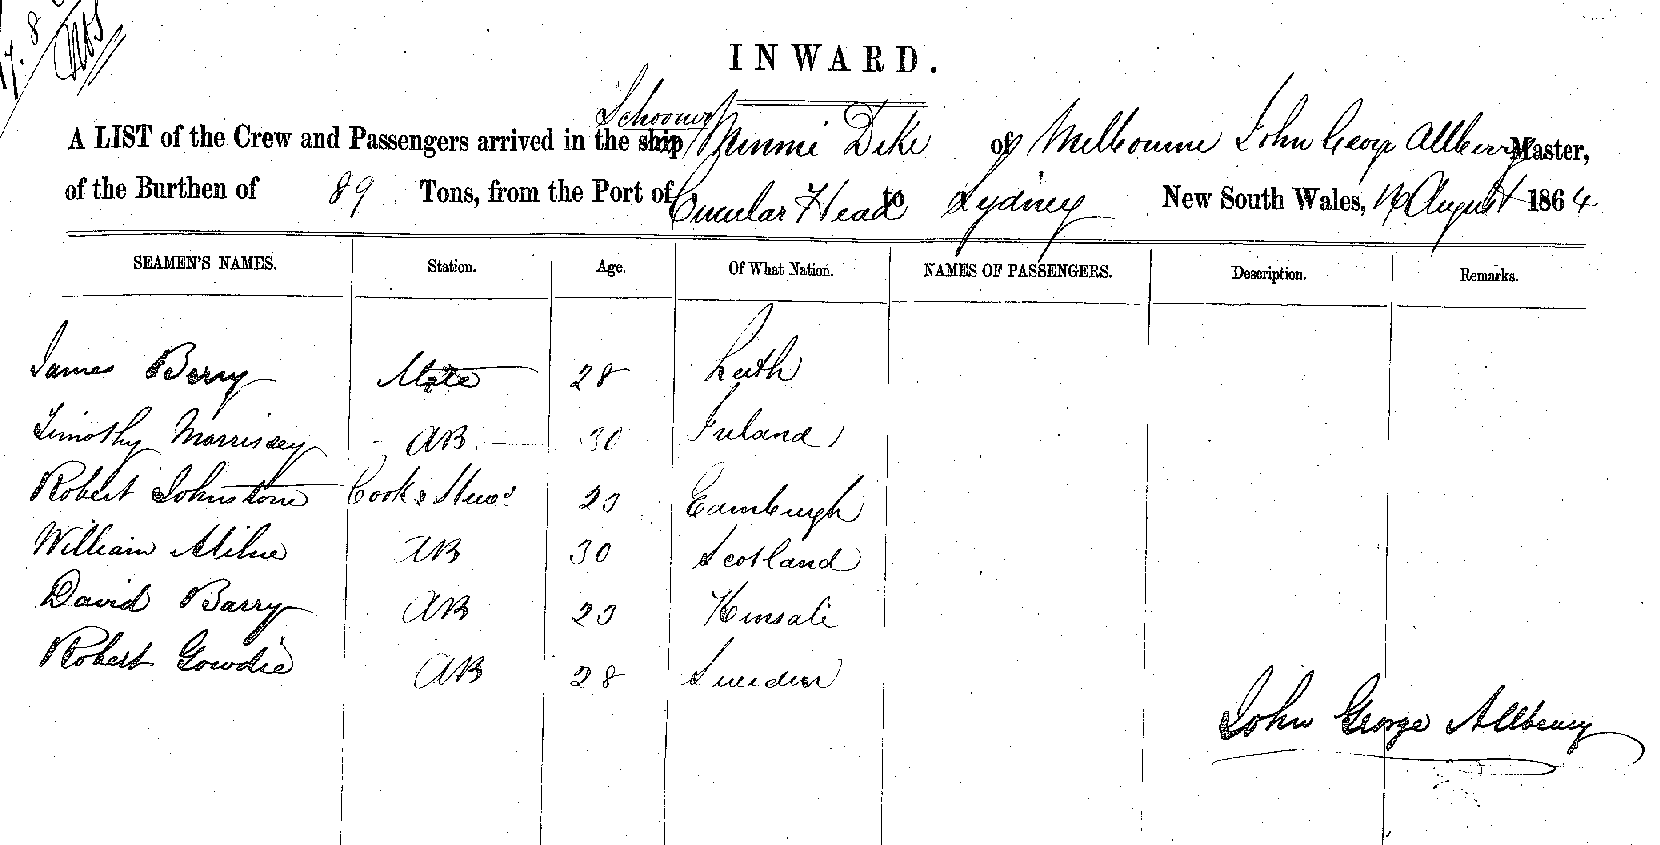 17.8
INWARD.
Schooner
A LIST of the Crew and Passengers arrived in the ship Minnie Dike of Melbourne John George Allbeury Master,
of the Burthen of 89 Tons, from the Port of Circular Head to Sydney New South Wales, 16 August 1864
SEAMEN'S NAMES. Station. Age. Of What Nation. NAMES OF PASSENGERS. Description. Remarks.
James Berry Mate 28 Leith
Timothy Morrissey AB 30 Ireland
Robert Johnstone Cook & Stewd 23 Edinburgh
William Milne AB 30 Scotland
David Barry AB 23 Kinsale
Robert Gowdie AB 28 Sweden
John George Allbeury